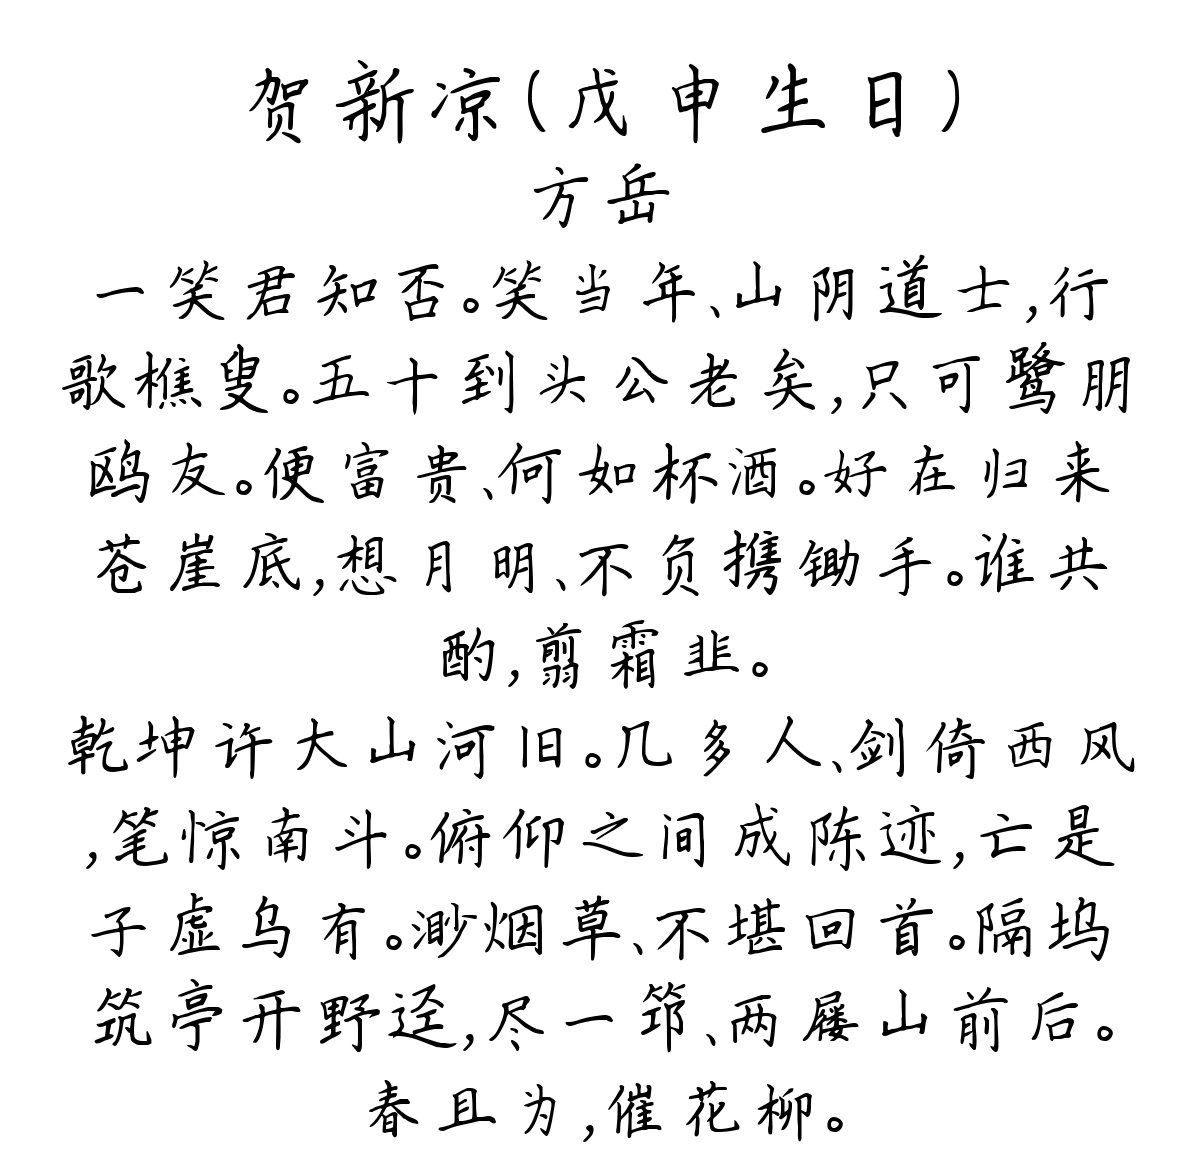 贺新凉(戊申生日)
方岳
一笑君知否。笑当年、山阴道士,行
歌樵叟。五十到头公老矣,只可鹭朋
鸥友。便富贵、何如杯酒。好在归来
苍崖底,想月明、不负携锄手。谁共
酌,翦霜韭。
乾坤许大山河旧。几多人、剑倚西风
,笔惊南斗。俯仰之间成陈迹,亡是
子虚乌有。渺烟草、不堪回首。隔坞
筑亭开野迳,尽一筇、两屐山前后。
春且为,催花柳。